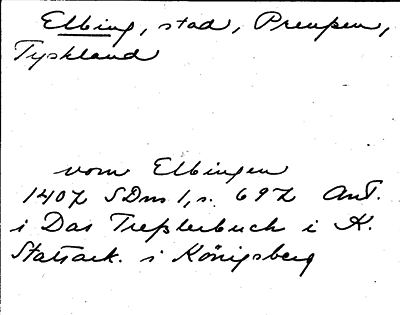 Elbing, stad, Preuſsen,
Tyskland
vom Elbingen
1407 SDns 1, s. 697 Ant.
i Das Treſslerbuch i K.
Statsark. i Königsberg